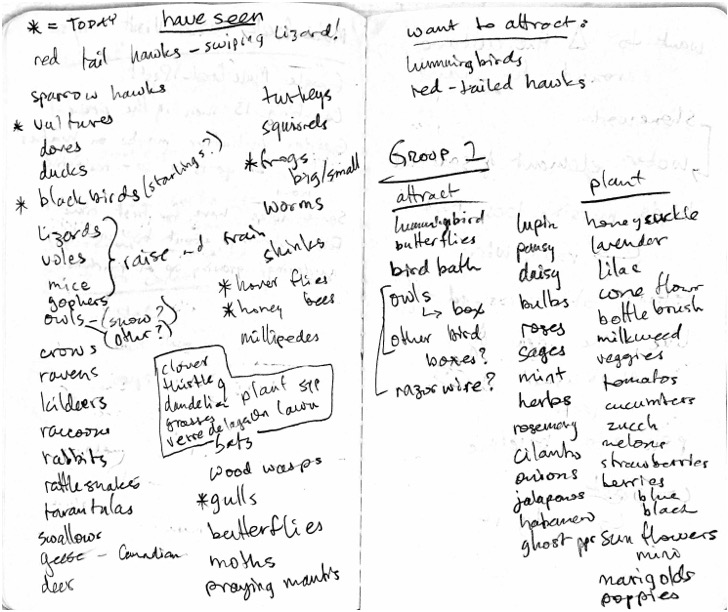 * = TODAY have seen
red tail hawks - swiping lizard!
sparrow hawks
* vultures
doves
ducks
* blackbirds (starlings?)
lizards
voles
mice
raise and train
gophers
owls - (snow?)
(other?)
crows
ravens
kildeers
raccoons
rabbits
rattlesnakes
tarantulas
swallows
geese - Canadian
deer
turkeys
squirrels
* frogs
big/small
worms
skinks
* hover flies
* honey bees
millipedes
clover
thistle
dandelion plant spp
grasses
on lawn
bats
wood wasps
* gulls
butterflies
moths
praying mantis
want to attract:
hummingbirds
red-tailed hawks
Group 1
attract
hummingbird
butterflies
bird bath
owls
↳ box
other bird
boxes?
razor wire?
plant
lupin
pansy
daisy
bulbs
roses
sages
mint
herbs
rosemary
cilantro
onions
jalapenos
habanero
ghost ppr
honeysuckle
lavender
lilac
cone flowr
bottlebrush
milkweed
veggies
tomatos
cucumbers
zucch
melons
strawberries
berries
blue
black
sun flowers
mini
marigolds
poppies